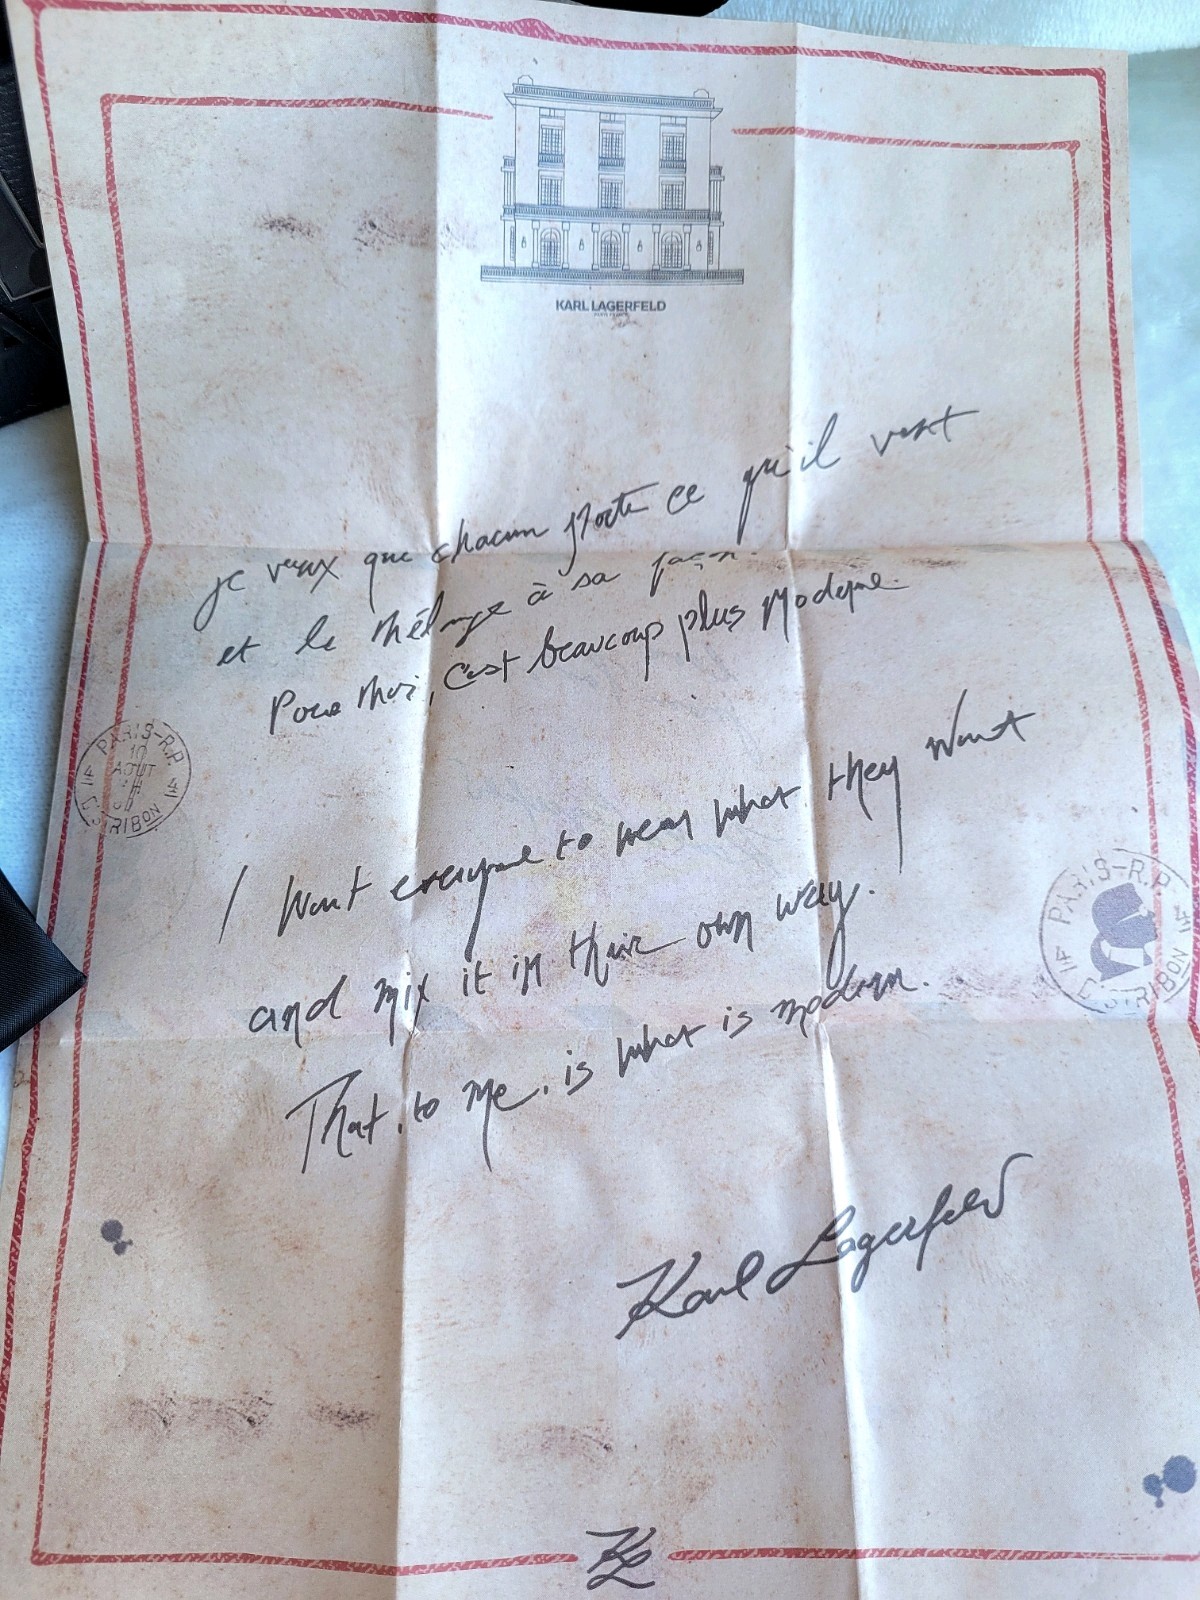 KARL LAGERFELD
je veux que chacun porte ce qu'il veut
et le mélange à sa façon.
Pour moi, c'est beaucoup plus moderne.
PARIS-R.P.
10
AOUT
I want everyone to wear what they want
and mix it in their own way.
That, to me, is what is modern.
PARIS-R.P.
Karl Lagerfeld
KL